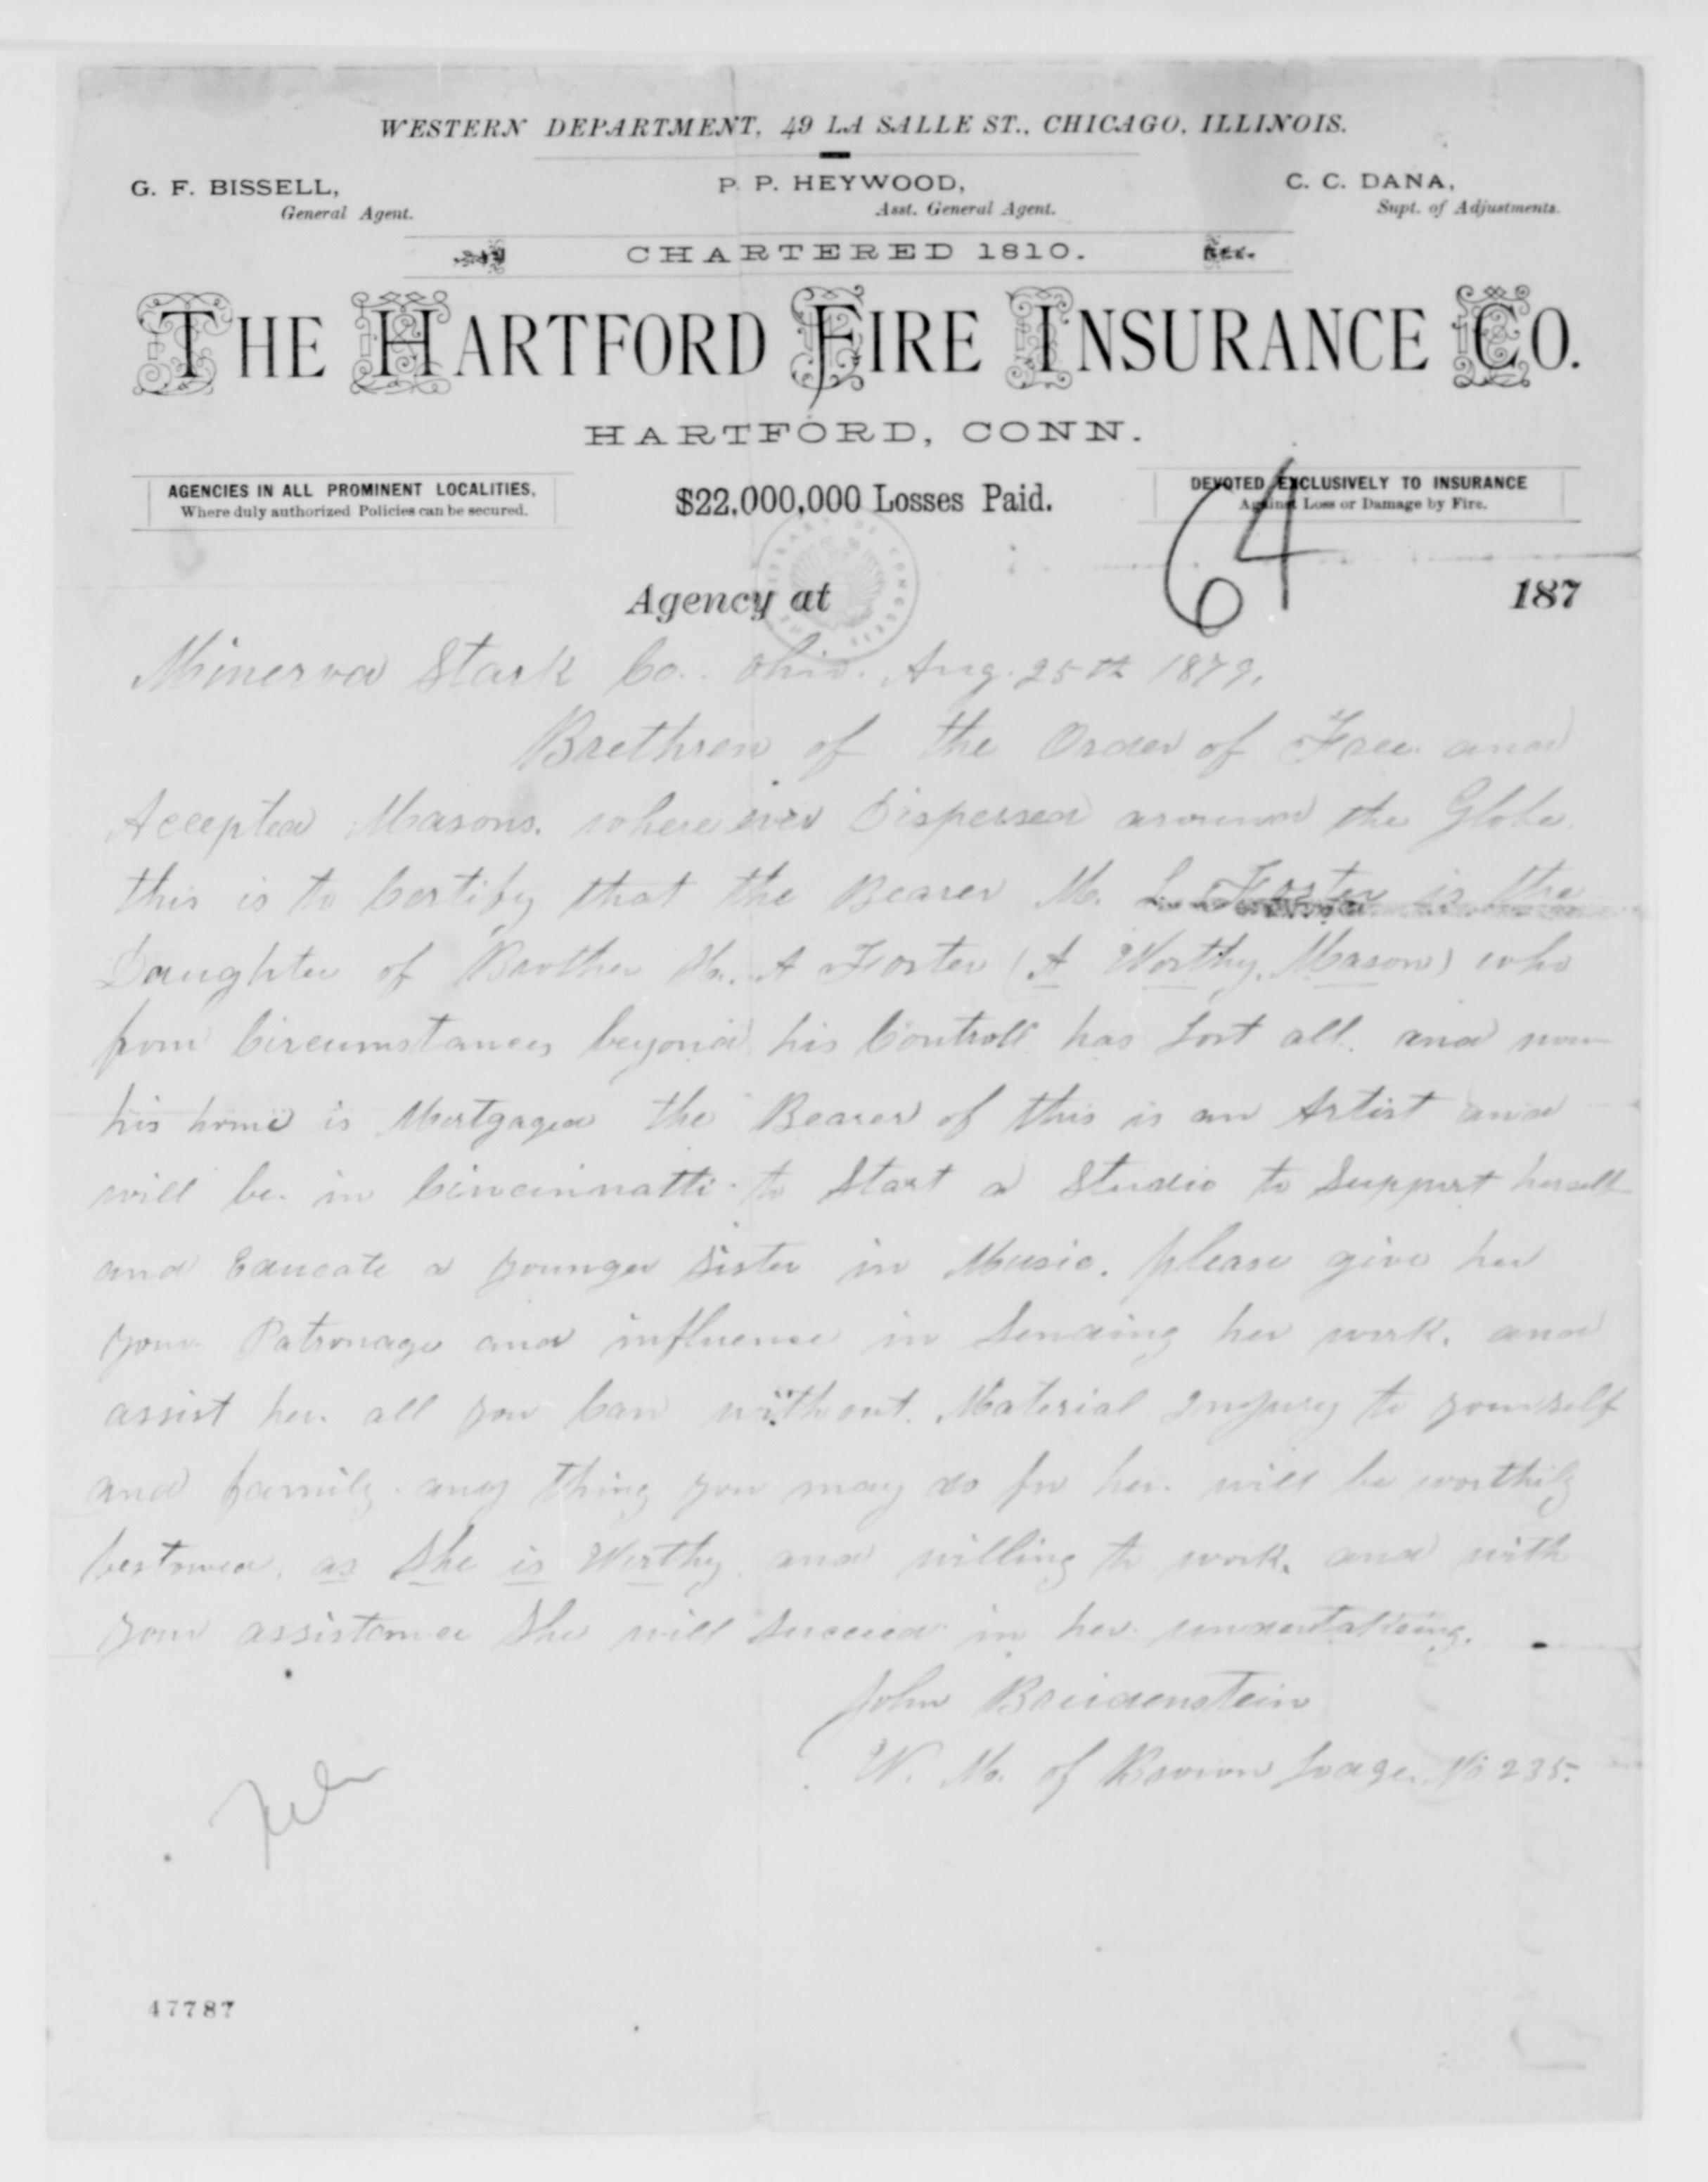 WESTERN DEPARTMENT, 49 LA SALLE ST., CHICAGO, ILLINOIS.
G. F. BISSELL, P. P. HEYWOOD, C. C. DANA,
General Agent. Asst. General Agent. Supt. of Adjustments.
CHARTERED 1810.
THE HARTFORD FIRE INSURANCE CO.
HARTFORD, CONN.
AGENCIES IN ALL PROMINENT LOCALITIES,
Where duly authorized Policies can be secured.
$22,000,000 Losses Paid.
DEVOTED EXCLUSIVELY TO INSURANCE
Against Loss or Damage by Fire.
64
Agency at 187
Minerva Stark Co. Ohio. Aug. 25th 1879.
Brethren of the Order of Free and
Accepted Masons. where ever Dispersed around the Globe
this is to Certify that the Bearer M. L. Foster is the
Daughter of Brother M. A Foster (A Worthy Mason) who
from Circumstances beyond his Controll has Lost all. and now
his home is Mortgaged the Bearer of this is an Artist and
will be in Cincinnatti to Start a Studio to Support herself
and Educate a younger Sister in Music. please give her
your Patronage and influence in Sending her work. and
assist her all you Can without Material Injury to yourself
and family. any thing you may do for her will be worthily
bestowed. as She is Worthy and willing to work. and with
your assistance She will Succeed in her undertakeing.
John Breidenstein
W. M. of Brown Lodge No 235.
47787